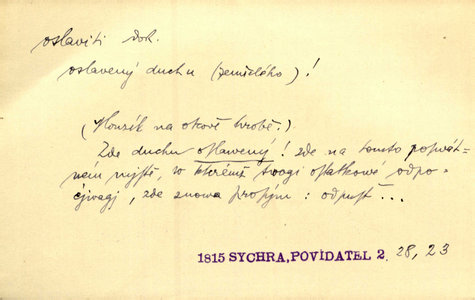 oslaviti dok.
oslavený duchu (zemřelého)!
(Honzík na otcově hrobě.)
Zde duchu oslawený! zde na tomto poswát-
ném mjstě, w kterémž twogi ostatkowé odpo-
čjwagj, zde znowa prosým: odpusť...
1815 SYCHRA, POVÍDATEL 2. 28, 23